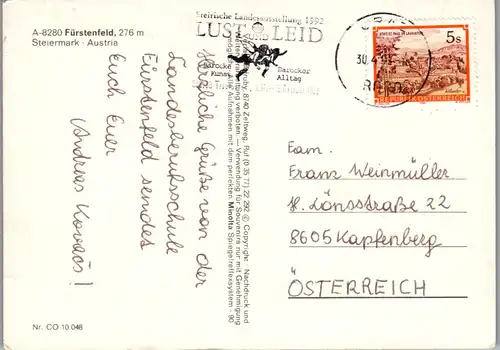 A-8280 Fürstenfeld, 276 m
Steiermark · Austria
Steirische Landesausstellung 1992
LUST UND LEID
Barocke
Kunst
Barocker
Alltag
30.4.9
5s
REPUBLIK ÖSTERREICH
Herzliche Grüße von der
Landesberufsschule
Fürstenfeld sendet
Euch Euer
Andreas Kovacs!
8740 Zeltweg, Ruf (0 35 77) 22 292 © Copyright Nachdruck und
verboten — Verwendung für Souvenirs nur mit Genehmigung
Aufnahmen mit dem perfekten Minolta Spiegelreflexsystem - 90
Fam.
Franz Weinmüller
H. Lönsstraße 22
8605 Kapfenberg
ÖSTERREICH
Nr. CO 10.048